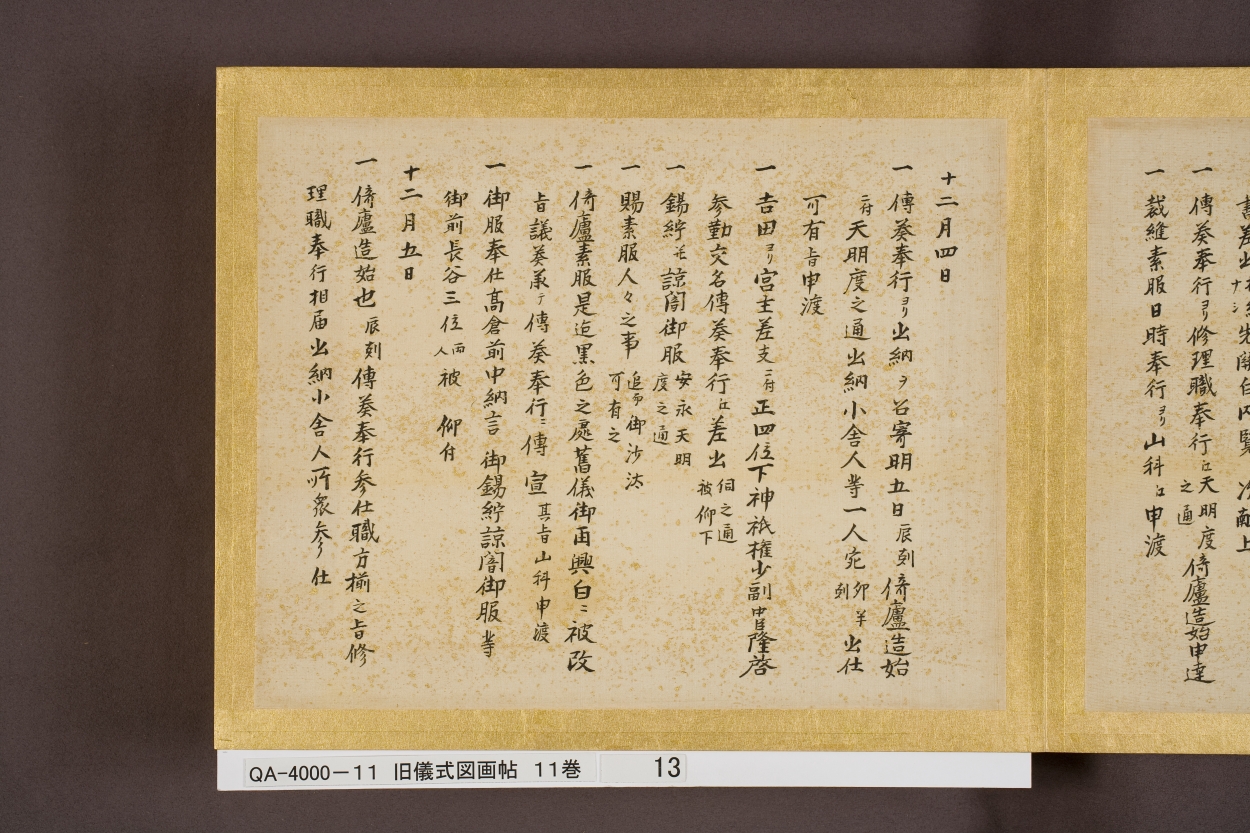 書差出
先関白内覧
一傳奏奉行ヨリ修理職奉行江天明度之通倚廬造始申達
一裁縫素服日時奉行ヨリ山科江申渡
十二月四日
一傳奏奉行ヨリ出納ヲ召寄明五日辰刻倚廬造始
ニ付天明度之通出納小舎人等一人宛卯半刻出仕
可有旨申渡
一吉田ヨリ宮主差支ニ付正四位下神祇権少副卜部隆啓
参勤交名傳奏奉行江差出伺之通被仰下
一錫紵并諒闇御服安永天明度之通
一賜素服人々之事追而御沙汰可有之
一倚廬素服是迄黒色之處舊儀御再興白ニ被改
旨議奏承テ傳奏奉行ニ傳宣其旨山科申渡
一御服奉仕高倉前中納言御錫紵諒闇御服等
御前長谷三位両人被仰付
十二月五日
一倚廬造始也辰刻傳奏奉行参仕職方揃之旨修
理職奉行相届出納小舎人所衆参仕
QA-4000-11 旧儀式図画帖 11巻 13